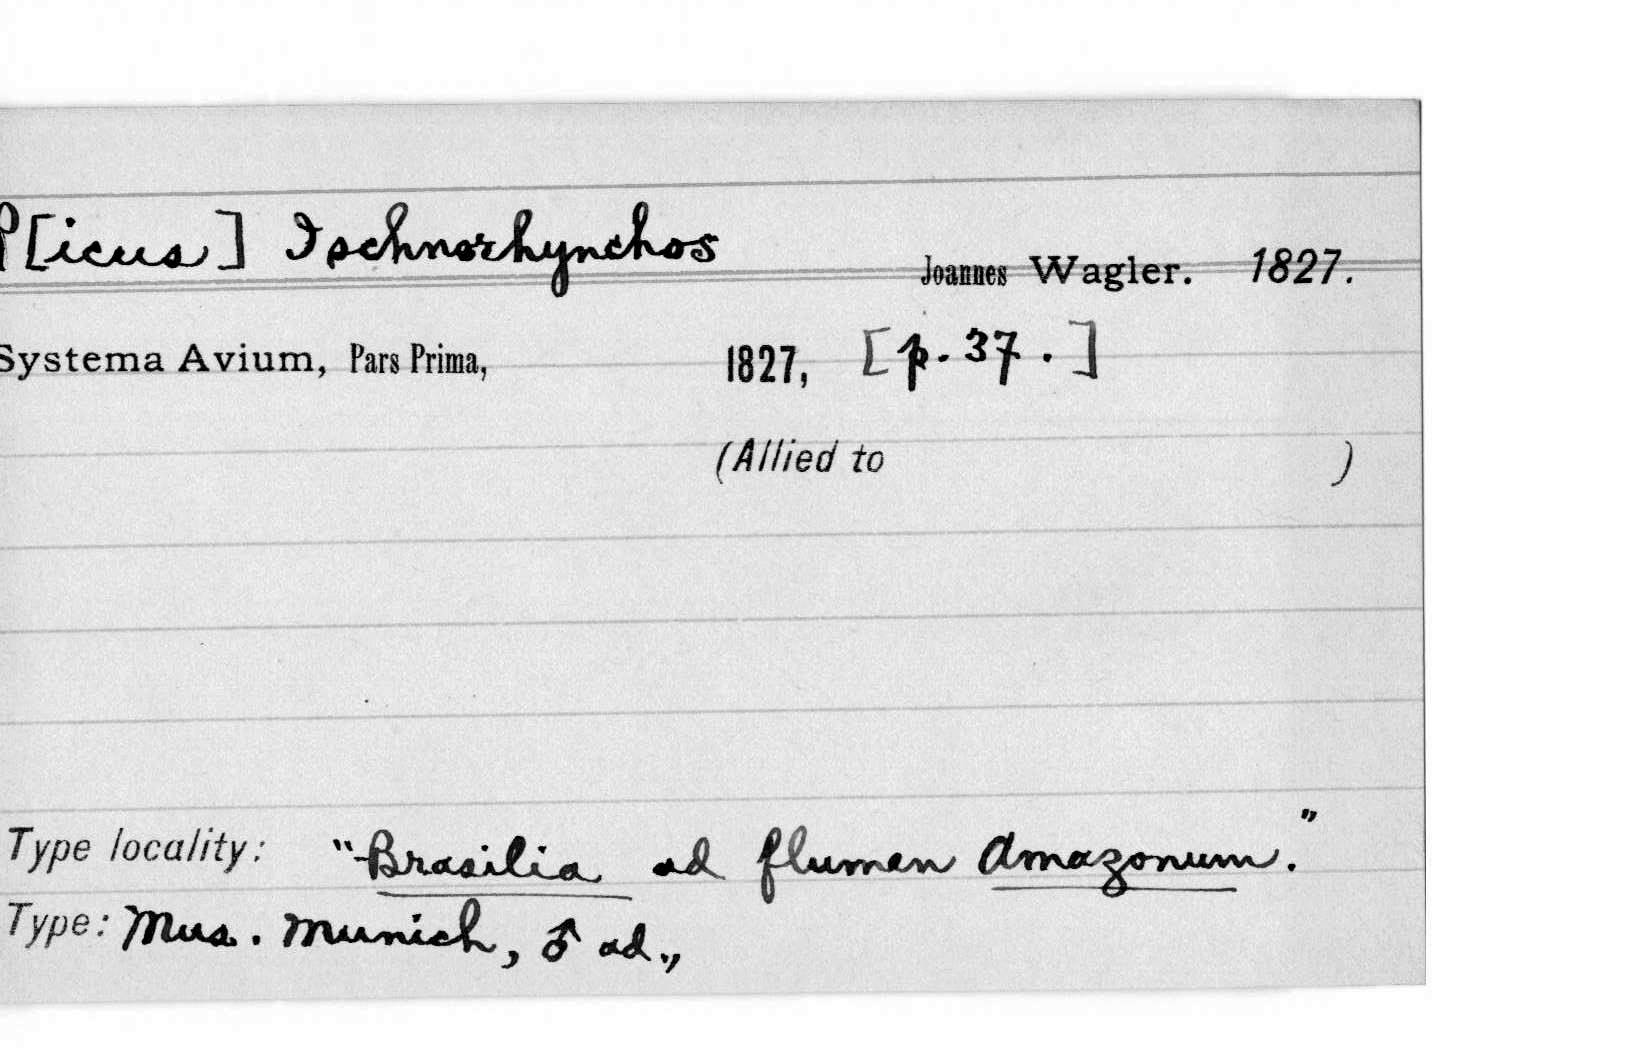 P[icus] Ischnorhynchos
Joannes Wagler. 1827.
Systema Avium, Pars Prima, 1827, [p. 37.]
(Allied to )
Type locality: "Brasilia ad flumen Amazonum."
Type: Mus. Munich, ♂ ad.,